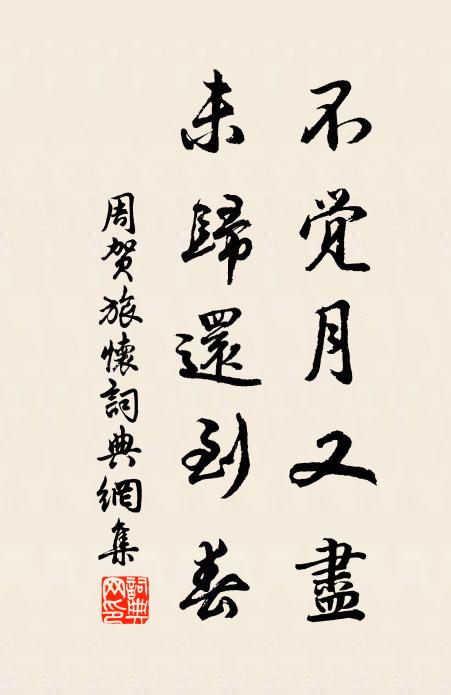 不觉月又盡
未歸還到春
周贺旅懷詞典網集
詞典网印